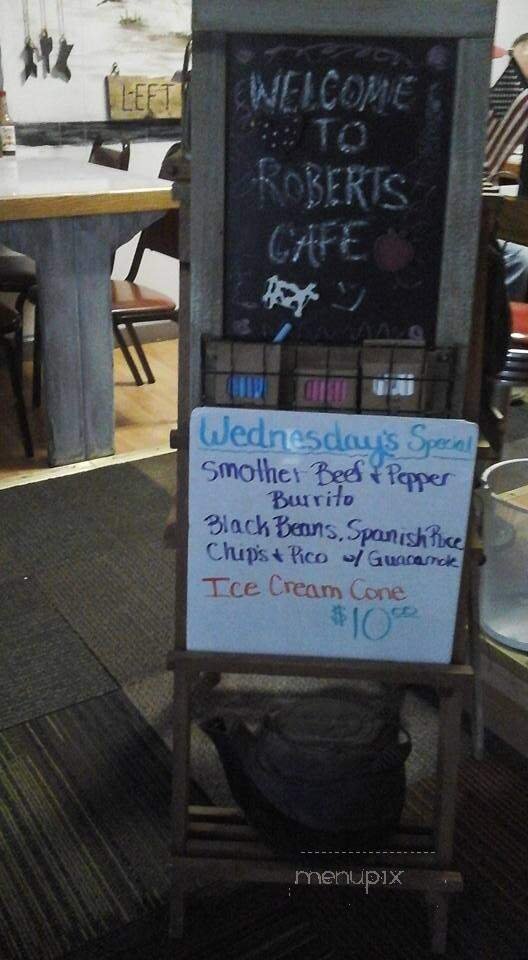 LEFT
WELCOME
TO
ROBERTS
CAFE
Wednesday's Special
Smother Beef & Pepper
Burrito
Black Beans, Spanish Rice
Chip's & Pico w/ Guacamole
Ice Cream Cone
$10.00
menupix